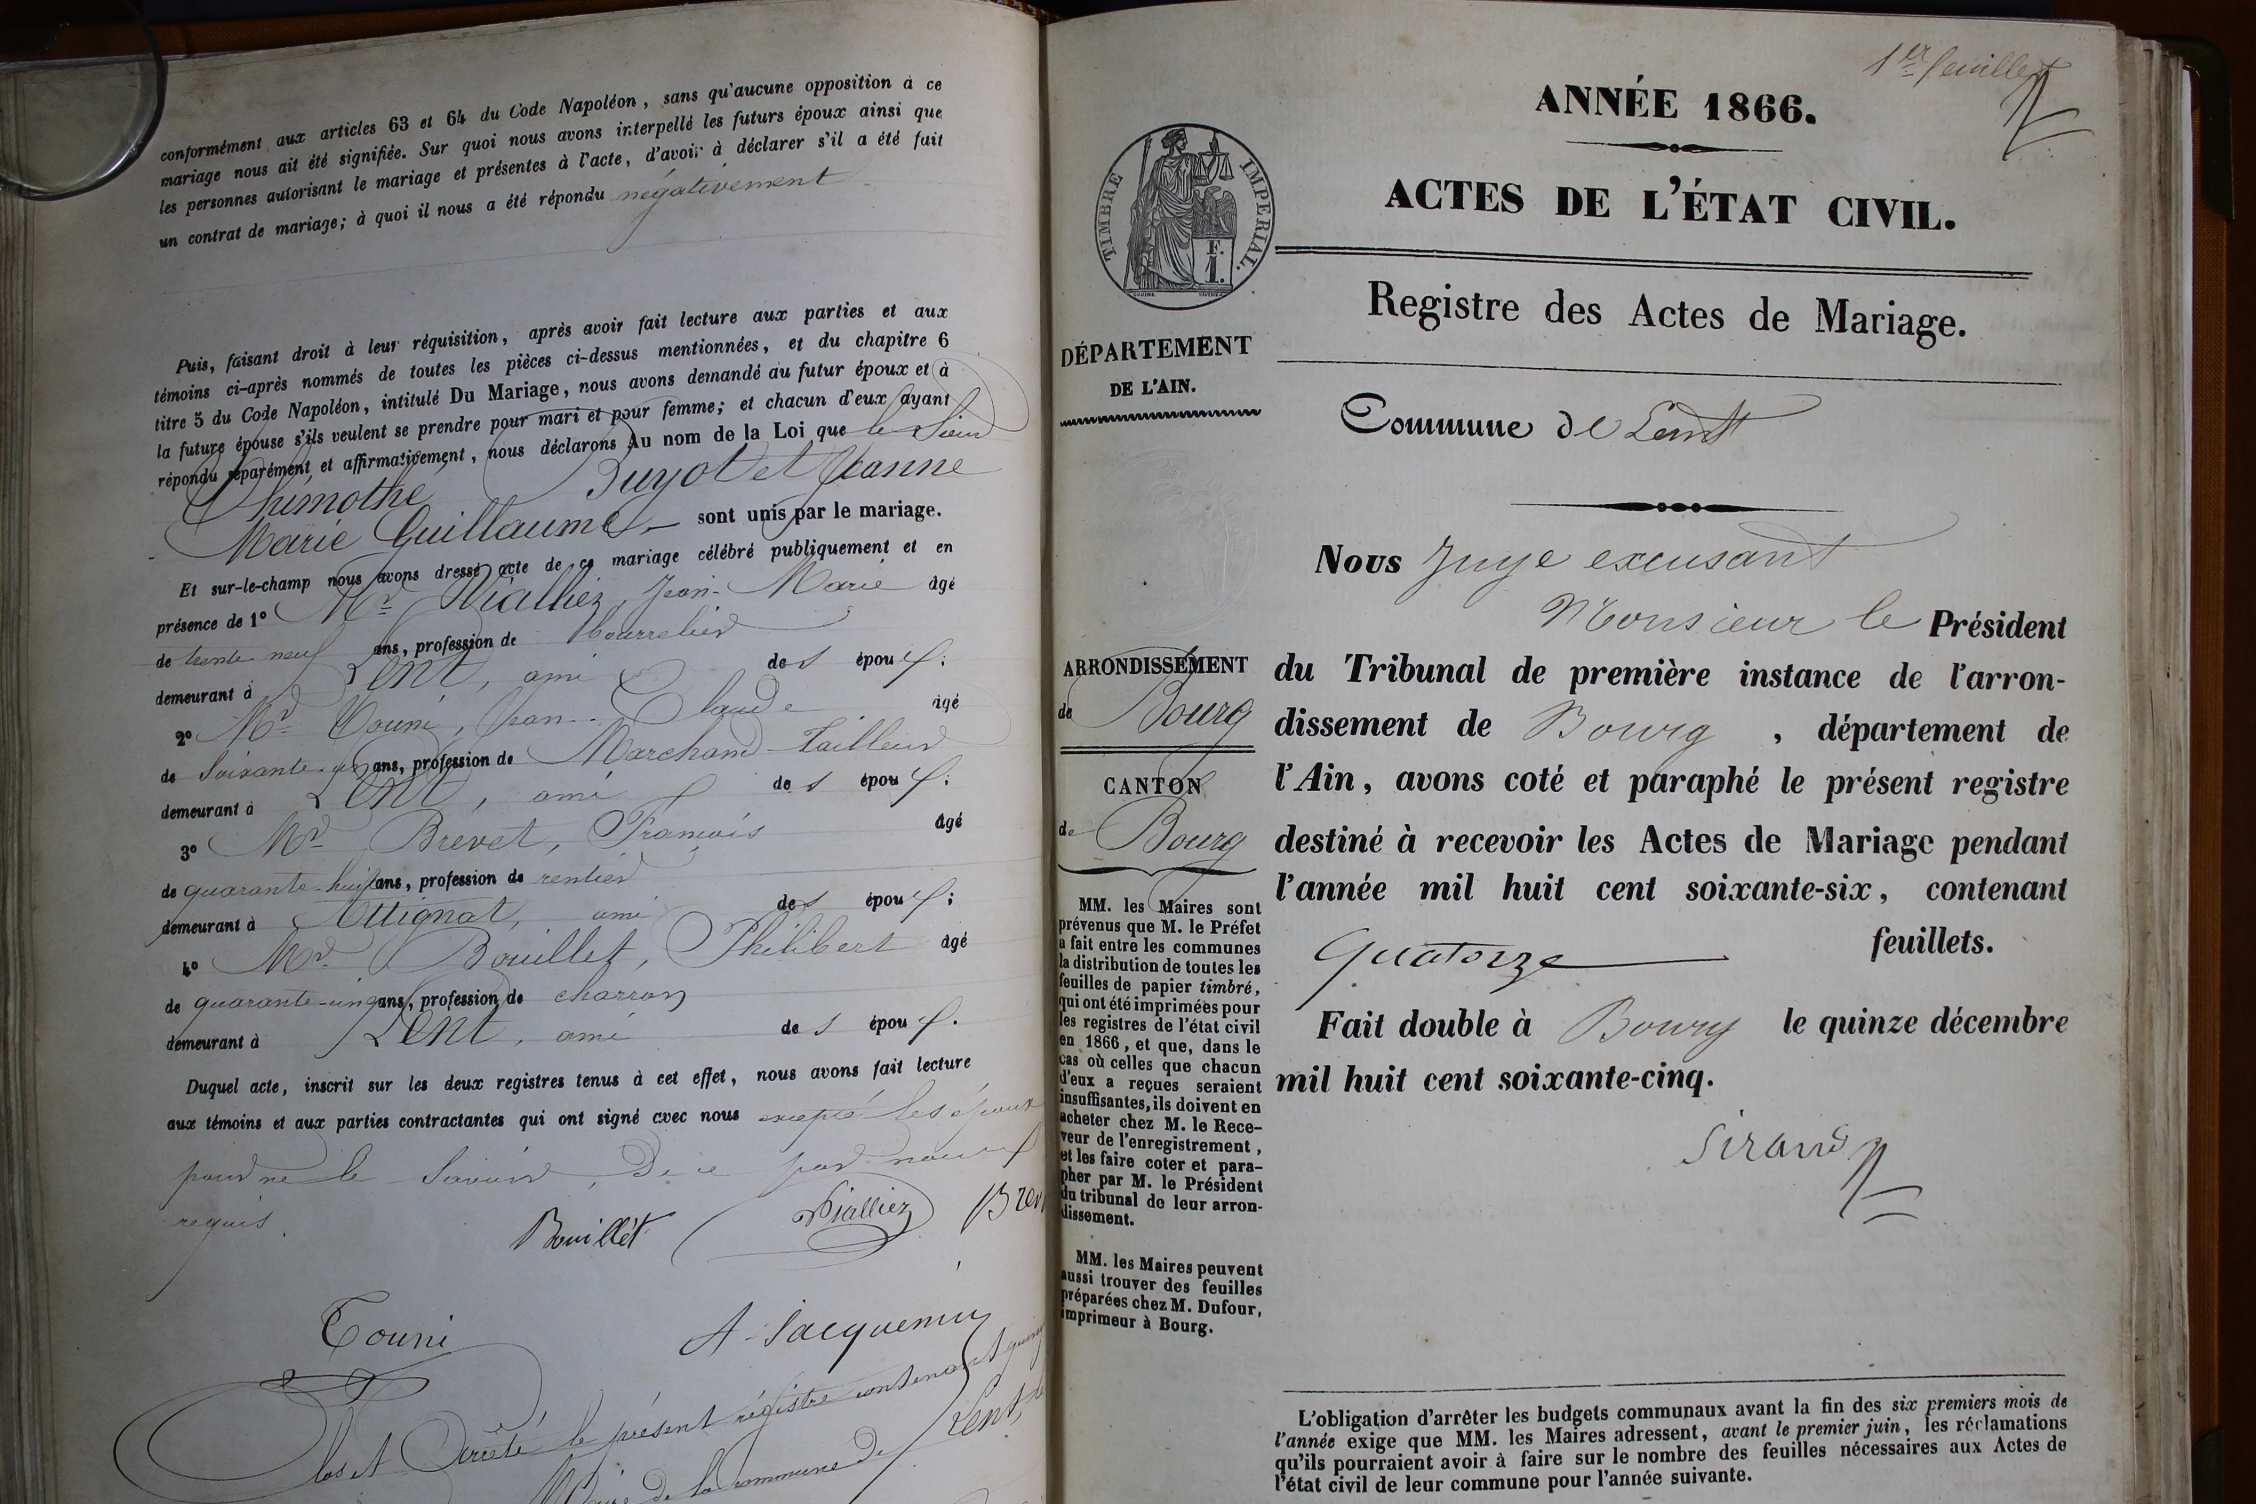 conformément aux articles 63 et 64 du Code Napoléon, sans qu'aucune opposition à ce
mariage nous ait été signifiée. Sur quoi nous avons interpellé les futurs époux ainsi que
les personnes autorisant le mariage et présentes à l'acte, d'avoir à déclarer s'il a été fait
un contrat de mariage; à quoi il nous a été répondu négativement
Puis, faisant droit à leur réquisition, après avoir fait lecture aux parties et aux
témoins ci-après nommés de toutes les pièces ci-dessus mentionnées, et du chapitre 6
titre 5 du Code Napoléon, intitulé Du Mariage, nous avons demandé au futur époux et à
la future épouse s'ils veulent se prendre pour mari et pour femme; et chacun d'eux ayant
répondu séparément et affirmativement, nous déclarons Au nom de la Loi que le Sieur
Thimothé Buyot et Jeanne
Marie Guillaume sont unis par le mariage.
Et sur-le-champ nous avons dressé acte de ce mariage célébré publiquement et en
présence de 1º Mr Vialliez, Jean-Marie âgé
de trente neuf ans, profession de bourrelier
demeurant à Lent, ami des époux;
2º Mr Touni, Jean-Claude âgé
de soixante- ans, profession de Marchand-tailleur
demeurant à Lent, ami des époux;
3º Mr Brevet, François âgé
de quarante-huit ans, profession de rentier
demeurant à Attignat, ami des époux;
4º Mr Bouillet, Philibert âgé
de quarante-cinq ans, profession de charron
demeurant à Lent, ami des époux.
Duquel acte, inscrit sur les deux registres tenus à cet effet, nous avons fait lecture
aux témoins et aux parties contractantes qui ont signé avec nous excepté les époux
pour ne le savoir, de ce par nous
requis.
Bouillet Vialliez Brev
Touni A. Jacquemin
Clos et Arrêté le présent régistre contenant
Maire de la commune de Lent,
1er feuillet
ANNÉE 1866.
ACTES DE L'ÉTAT CIVIL.
TIMBRE IMPÉRIAL.
F.
1.
Registre des Actes de Mariage.
DÉPARTEMENT
DE L'AIN.
Commune de Lent
Nous Juge excusant
Monsieur le Président
du Tribunal de première instance de l'arron-
dissement de Bourg, département de
l'Ain, avons coté et paraphé le présent registre
destiné à recevoir les Actes de Mariage pendant
l'année mil huit cent soixante-six, contenant
Quatorze feuillets.
Fait double à Bourg le quinze décembre
mil huit cent soixante-cinq.
Sirand
ARRONDISSEMENT
de Bourg
CANTON
de Bourg
MM. les Maires sont
prévenus que M. le Préfet
a fait entre les communes
la distribution de toutes les
feuilles de papier timbré,
qui ont été imprimées pour
les registres de l'état civil
en 1866, et que, dans le
cas où celles que chacun
d'eux a reçues seraient
insuffisantes, ils doivent en
acheter chez M. le Rece-
veur de l'enregistrement,
et les faire coter et para-
pher par M. le Président
du tribunal de leur arron-
dissement.
MM. les Maires peuvent
aussi trouver des feuilles
préparées chez M. Dufour,
imprimeur à Bourg.
L'obligation d'arrêter les budgets communaux avant la fin des six premiers mois de
l'année exige que MM. les Maires adressent, avant le premier juin, les réclamations
qu'ils pourraient avoir à faire sur le nombre des feuilles nécessaires aux Actes de
l'état civil de leur commune pour l'année suivante.